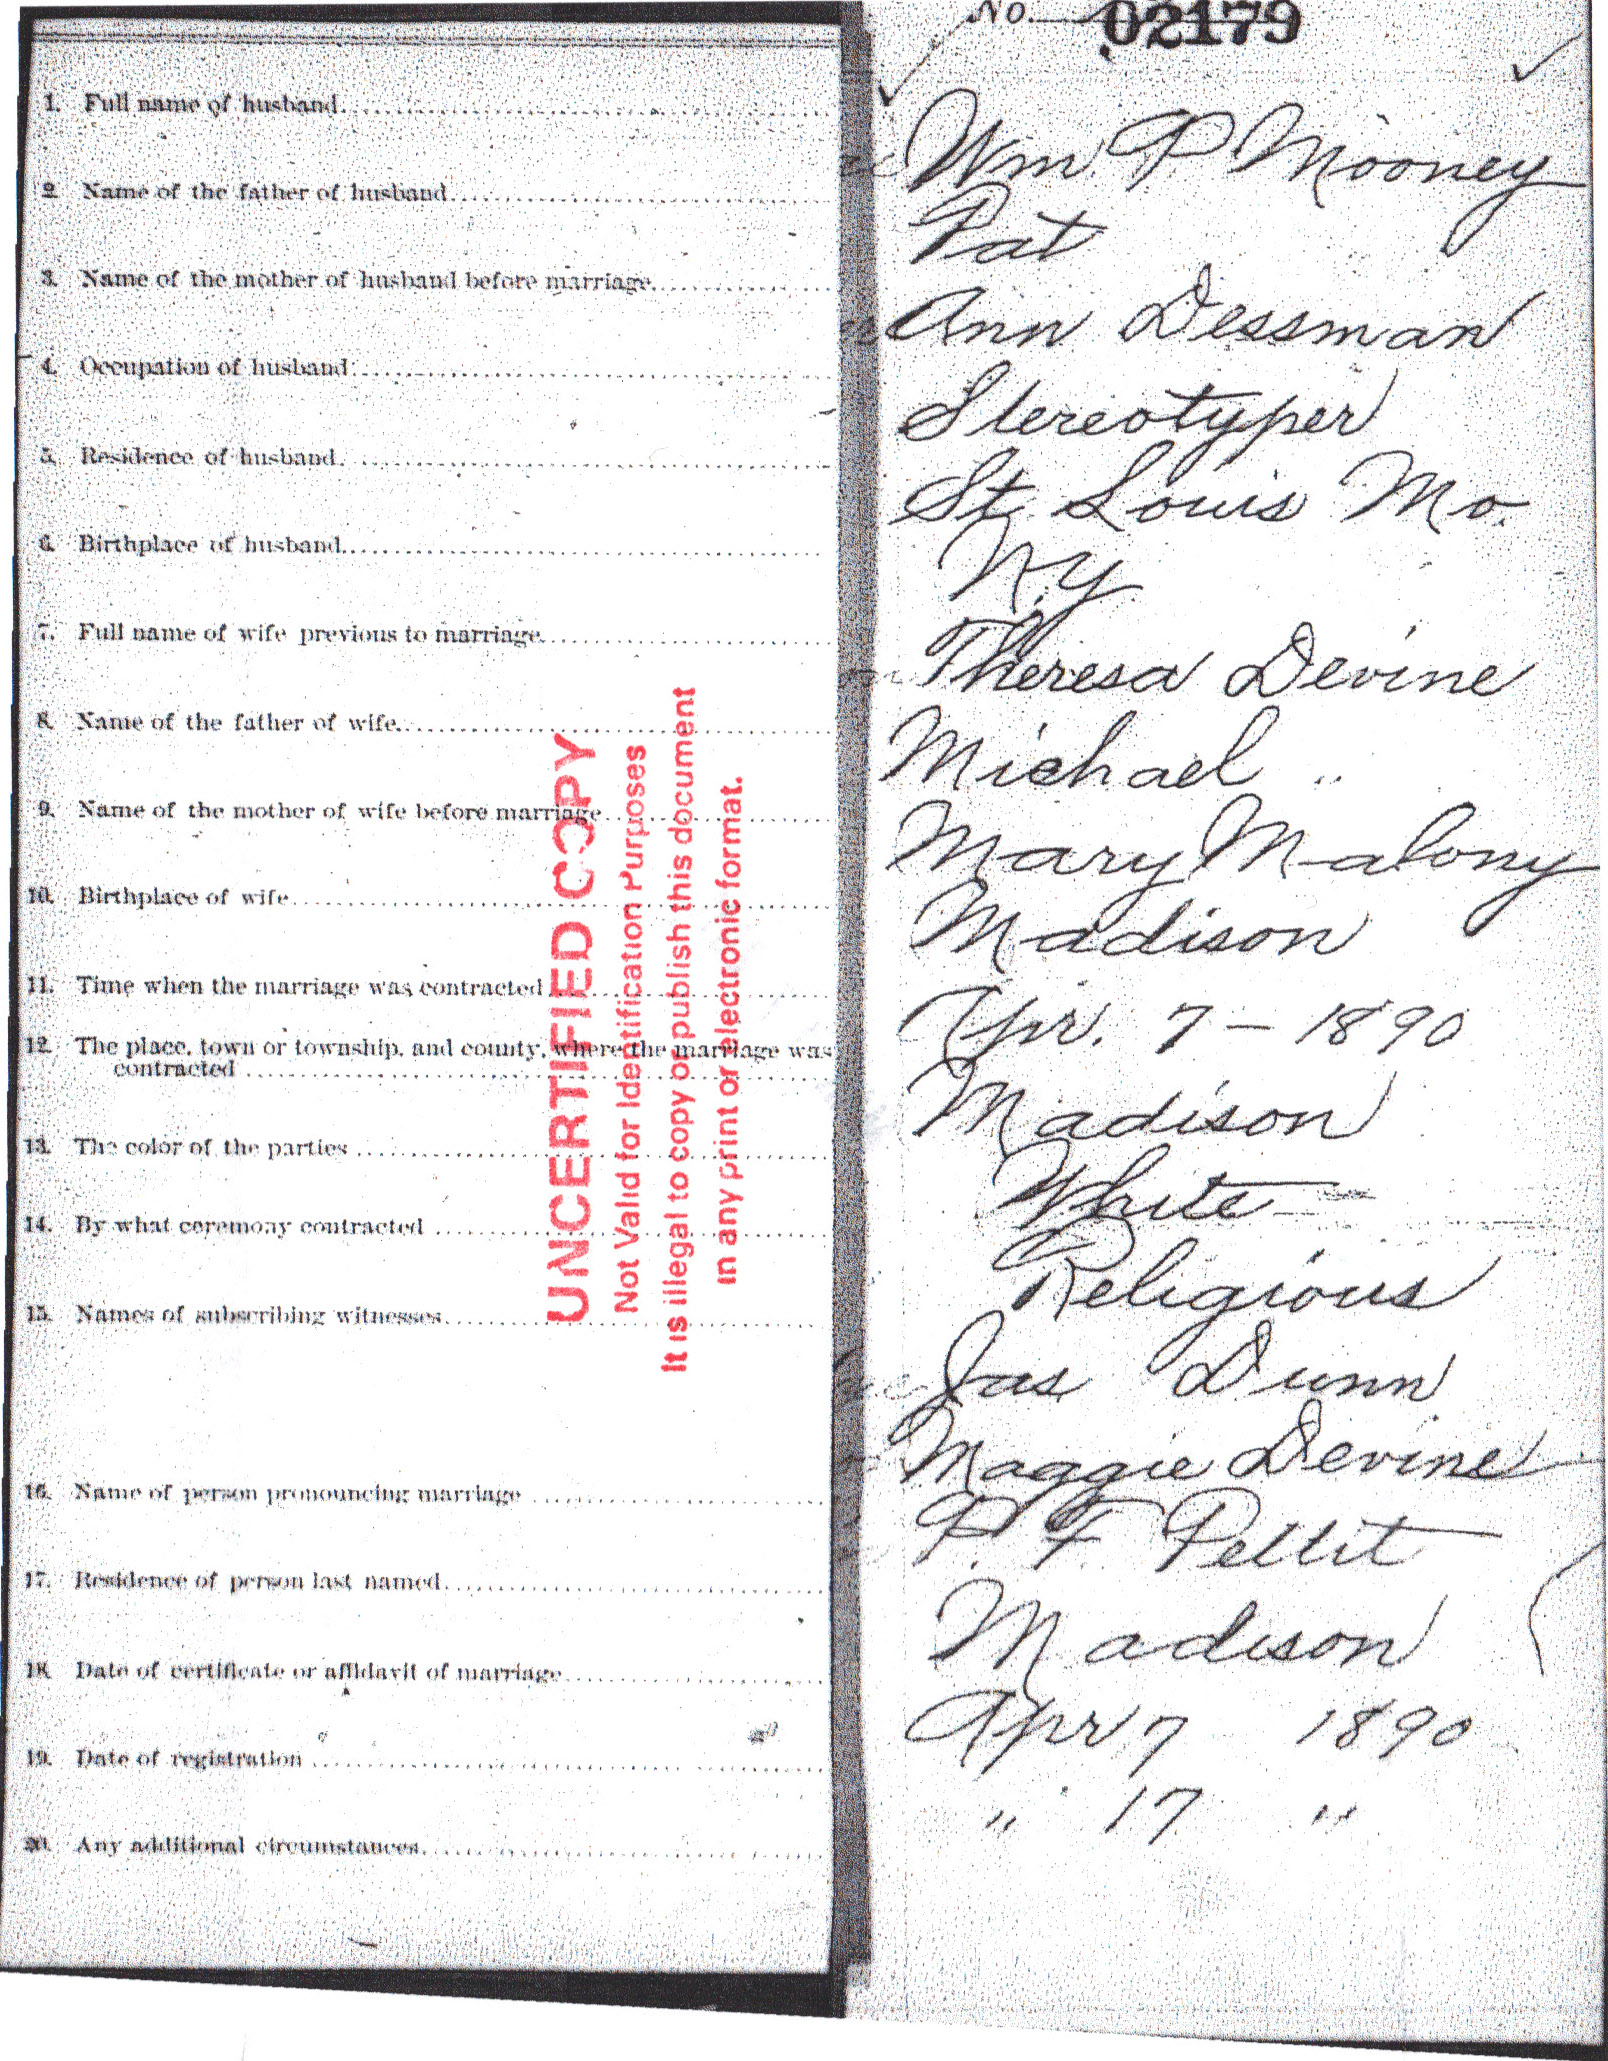 No. 02179
1. Full name of husband
Wm. P Mooney
2. Name of the father of husband
Pat
3. Name of the mother of husband before marriage
Ann Dessman
4. Occupation of husband
Stereotyper
5. Residence of husband
St Louis Mo.
6. Birthplace of husband
N.Y.
7. Full name of wife previous to marriage
Theresa Devine
8. Name of the father of wife
Michael "
9. Name of the mother of wife before marriage
Mary Malony
10. Birthplace of wife
Madison
11. Time when the marriage was contracted
Apr. 7 - 1890
12. The place, town or township, and county, where the marriage was
contracted
Madison
13. The color of the parties
White
14. By what ceremony contracted
Religious
15. Names of subscribing witnesses
Jas Dunn
Maggie Devine
16. Name of person pronouncing marriage
P. F. Pettit
17. Residence of person last named
Madison
18. Date of certificate or affidavit of marriage
Apr 7 1890
19. Date of registration
" 17 "
20. Any additional circumstances
UNCERTIFIED COPY
Not Valid for Identification Purposes
It is illegal to copy or publish this document
in any print or electronic format.